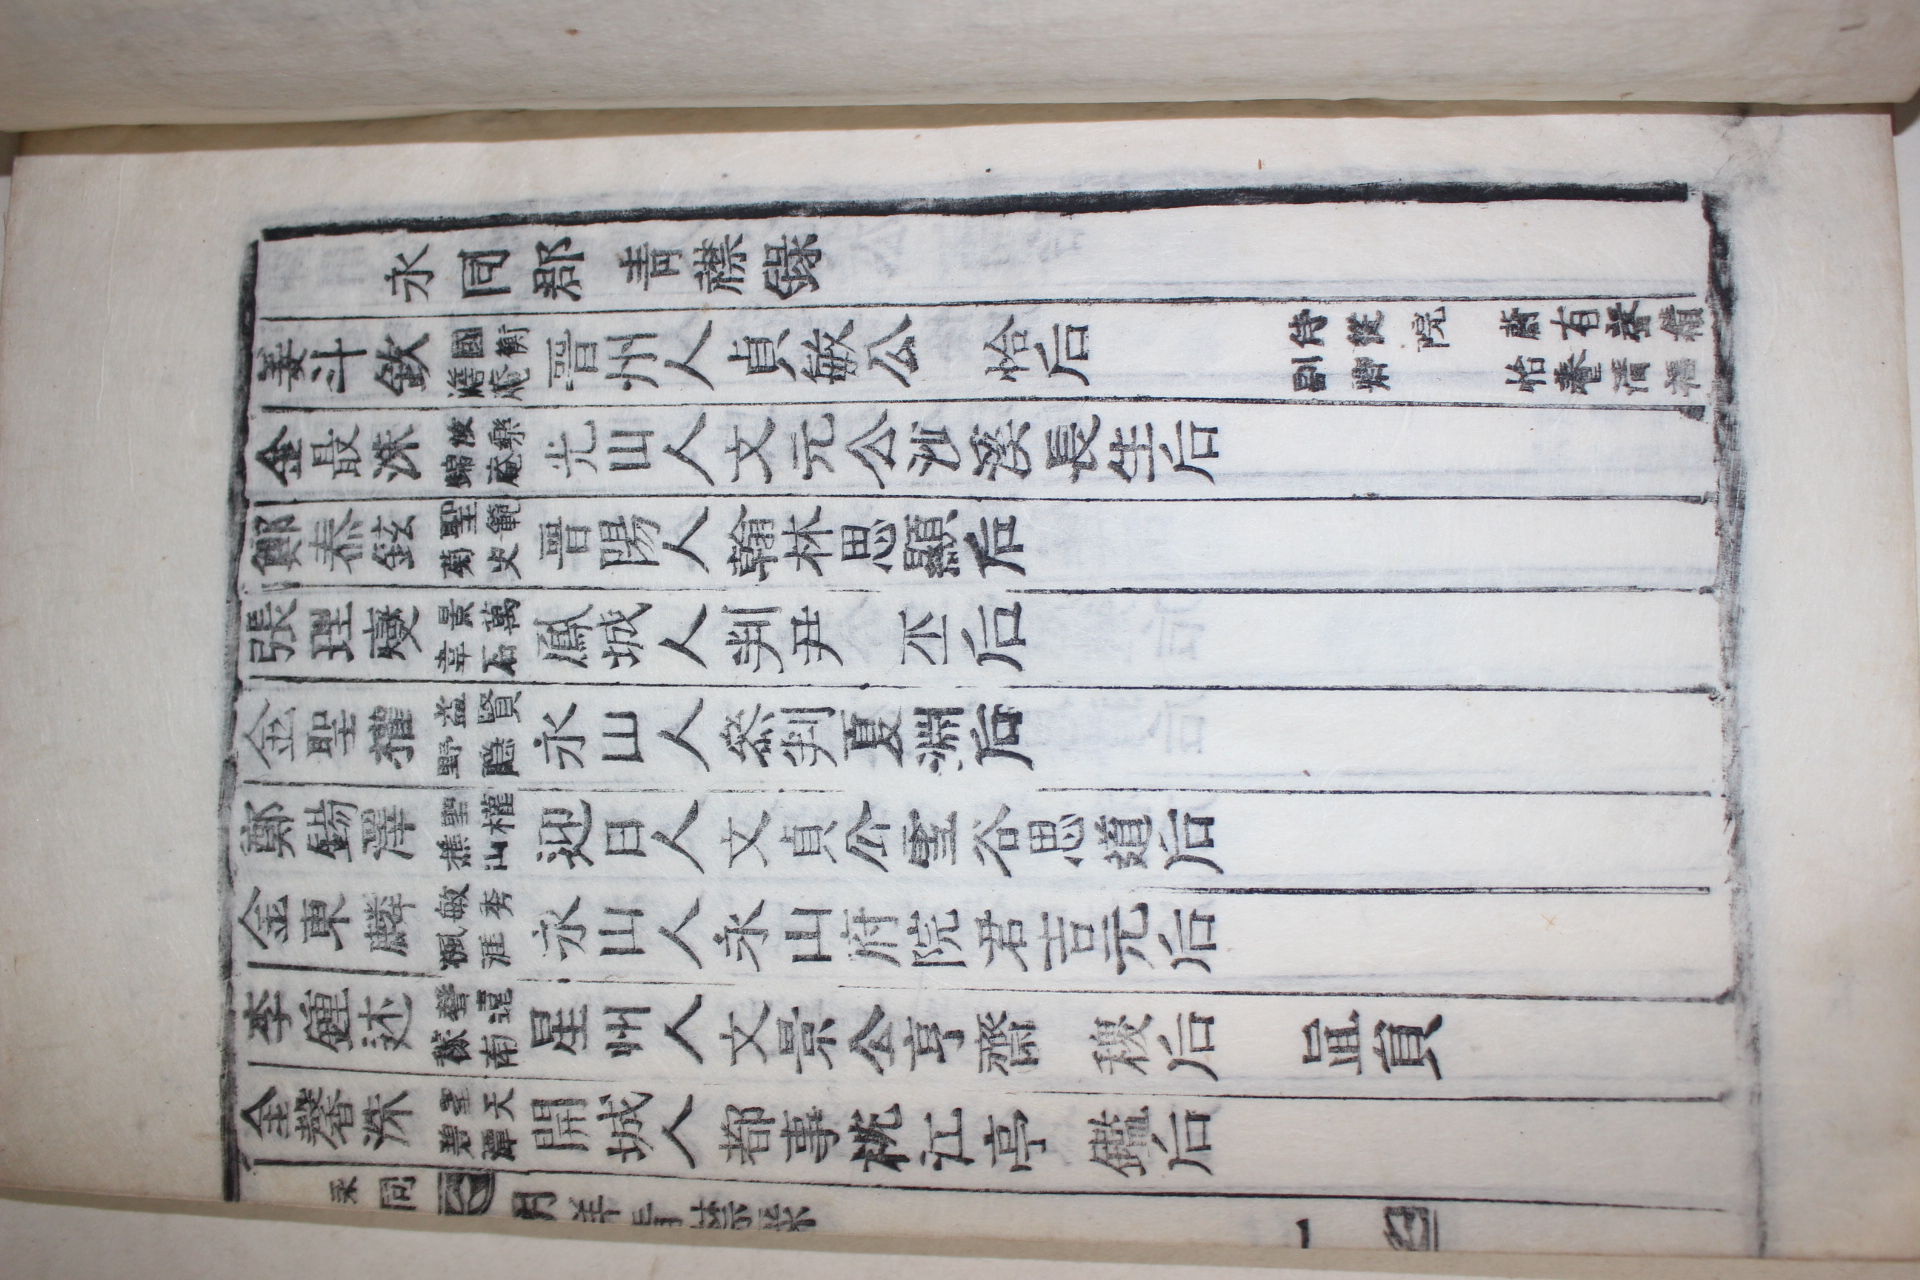 永同郡 青襟錄
姜斗欽 國衡 澹庵 晋州人貞敏公 恰后 侍從院 副卿 蔚有聲績 怡養淸福
金最洙 汝樂 歸庵 光山人文元公沙溪長生后
鄭泰鉉 聖範 菊史 晋陽人翰林思顯后
張理燮 景萬 韋石 鳳城人判尹 丕后
金聖權 益賢 野隱 永山人叅判夏淵后
鄭錫澤 聖權 樵山 迎日人文貞公雪谷思道后
金東麟 敏秀 楓涯 永山人永山府院君吉元后
李鍾述 聲遠 稼南 星州人文景公亨齋 稷后 直員
金馨洙 聖天 碧潭 開城人都事桃江亭 鑑后
永同 明 青襟錄 一